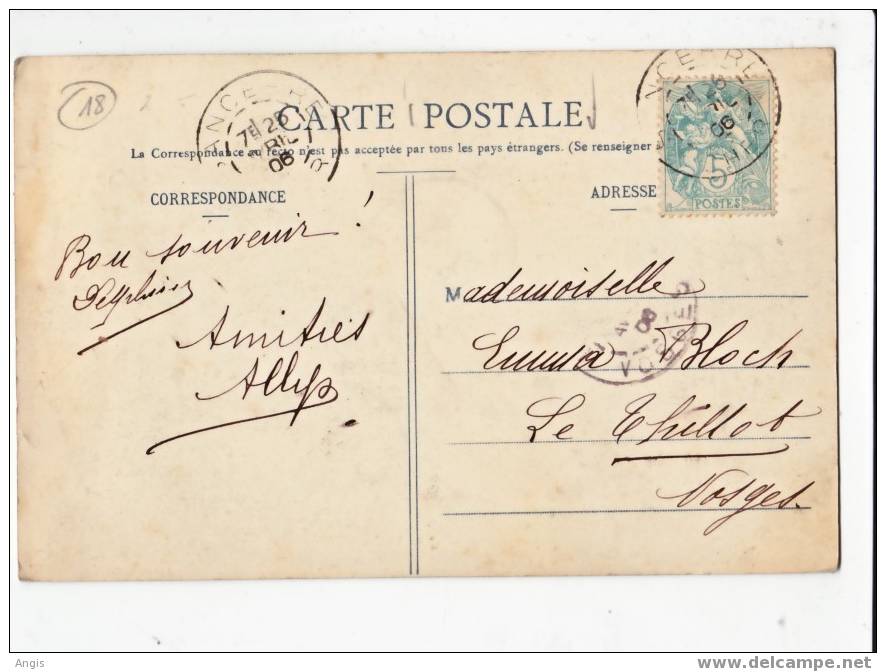 18
CARTE POSTALE
La Correspondance au recto n'est pas acceptée par tous les pays étrangers. (Se renseigner
CORRESPONDANCE
ADRESSE
5
POSTES
25
06
Bon souvenir !
Delphine
Amitiés
Mademoiselle
Emma Bloch
Le Thillot
Vosges.
VOSGES
Angis
www.delcampe.net